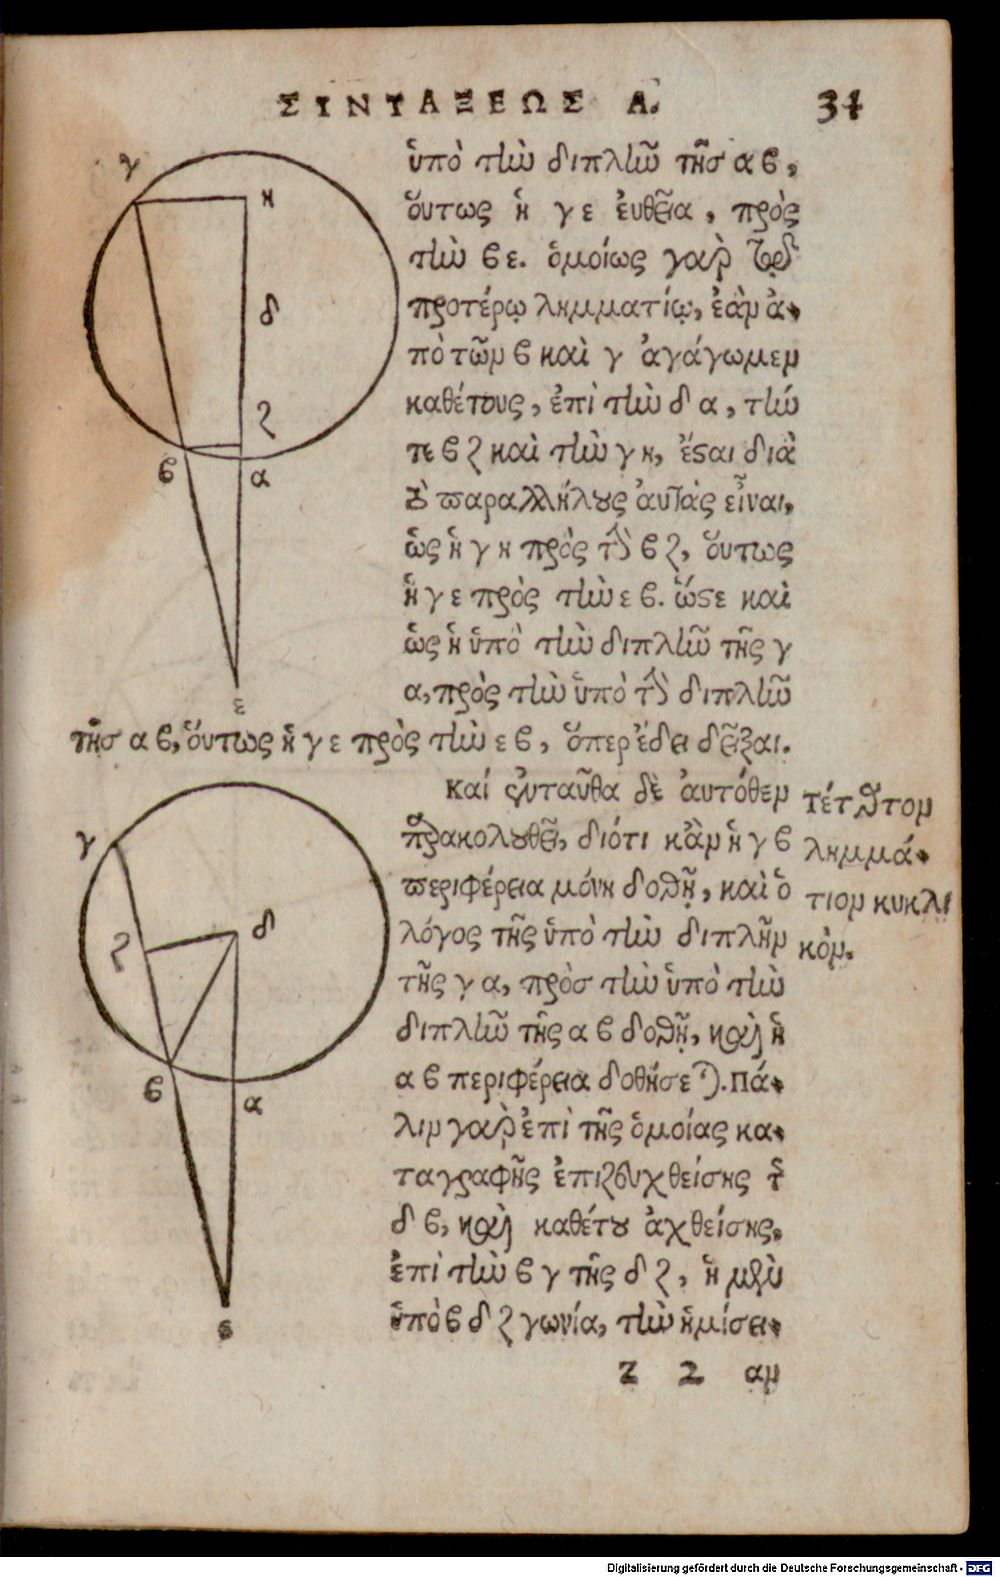 ΣΙΝΤΑΞΕΩΣ Α. 31
ὑπὸ τὴν διπλῆν τῆσ α β,
ὅυτως ἡ γ ε ἐυθεῖα, πρὸς
τὴν β ε. ὁμοίως γὰρ τῷ
προτέρῳ λημματίῳ, ἐὰν ἀ-
πὸ τῶν β καὶ γ ἀγάγωμεν
καθέτους, ἐπὶ τὴν δ α, τήν
τε β ζ καὶ τὴν γ η, ἔσται διὰ
τὸ παραλλήλους ἀυτὰς εἶναι,
ὡς ἡ γ η πρὸς τὴν β ζ, ὅυτως
ἡ γ ε πρὸς τὴν ε β. ὥστε καὶ
ὡς ἡ ὑπὸ τὴν διπλῆν τῆς γ
α, πρὸς τὴν ὑπὸ τὴν διπλῆν
τῆσ α β, ὅυτως ἡ γ ε πρὸς τὴν ε β, ὅπερ ἔδει δεῖξαι.
Καί ἐνταῦθα δὲ ἀυτόθεν
παρακολουθεῖ, διότι κἂν ἡ γ β
περιφέρεια μόνη δοθῇ, καὶ ὁ
λόγος τῆς ὑπὸ τὴν διπλῆν
τῆς γ α, πρὸσ τὴν ὑπὸ τὴν
διπλῆν τῆς α β δοθῇ, καὶ ἡ
α β περιφέρεια δοθήσεται. Πά-
λιν γὰρ ἐπὶ τῆς ὁμοίας κα-
ταγραφῆς ἐπιζευχθείσης τῆς
δ β, καὶ καθέτου ἀχθείσης,
ἐπὶ τὴν β γ τῆς δ ζ, ἡ μὲν
ὑπὸ β δ ζ γωνία, τὴν ἡμίσει-
z 2 αν
τέταρτον
λημμά-
τιον κυκλι
κόν.
γ
η
δ
ζ
β
α
ε
γ
δ
ζ
β
α
ε
Digitalisierung gefördert durch die Deutsche Forschungsgemeinschaft - DFG